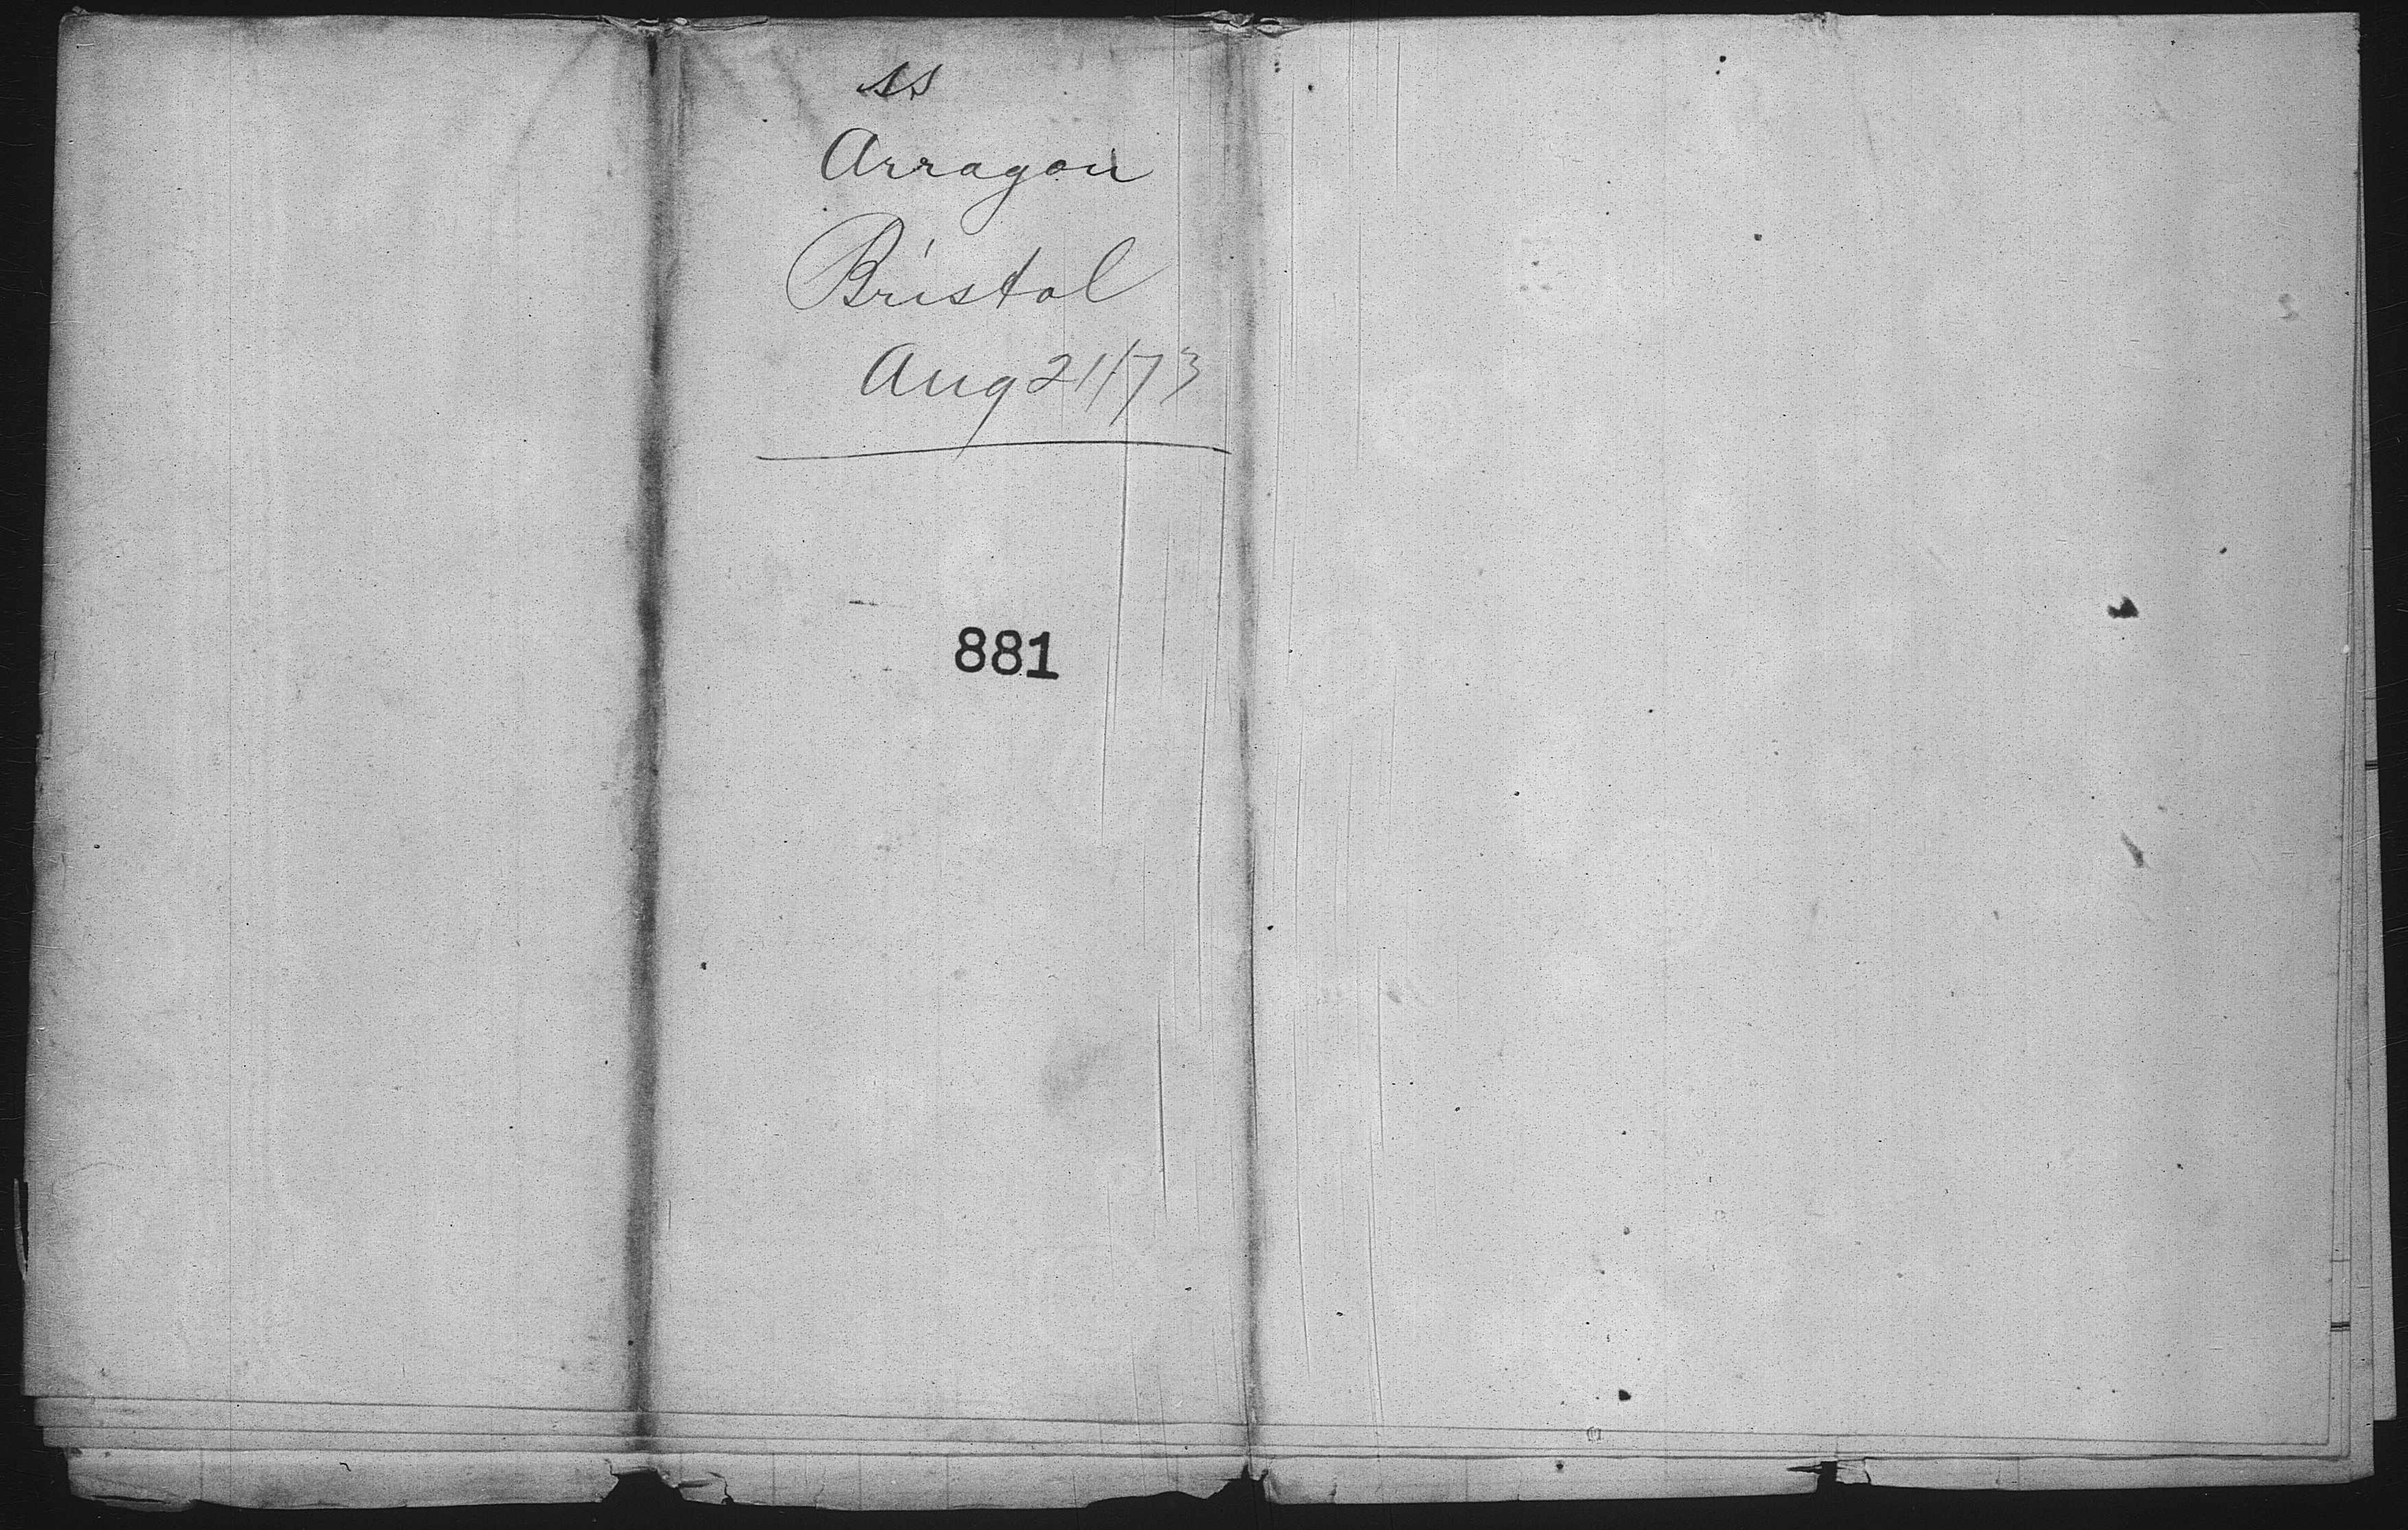 SS
Arragon
Bristol
Aug 21/73
881